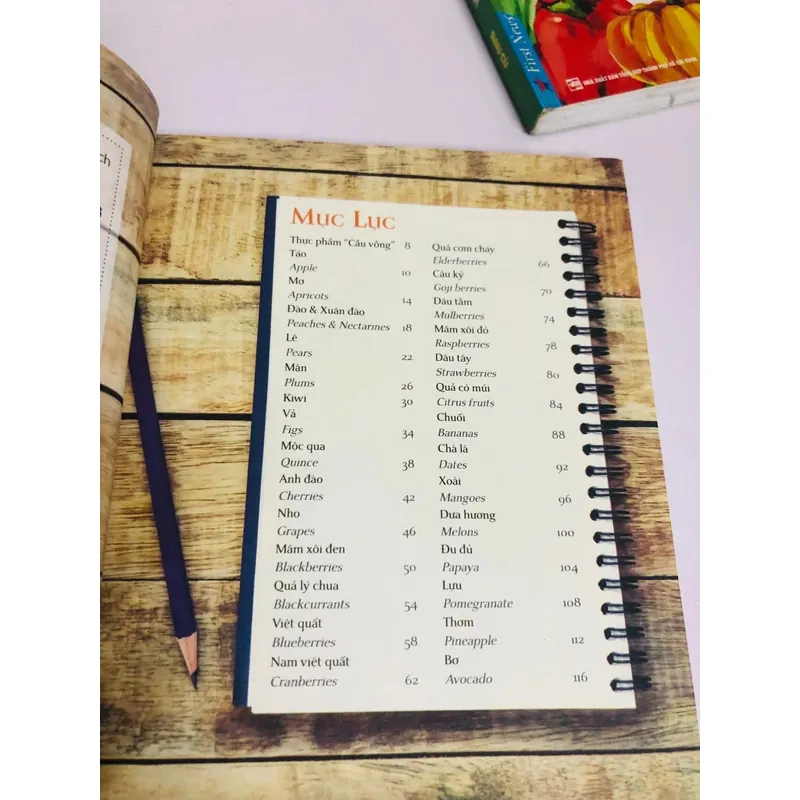 First News
NHÀ XUẤT BẢN TỔNG HỢP THÀNH PHỐ HỒ CHÍ MINH
ch
Mục Lục
Thực phẩm "Cầu vồng" 8
Táo
Apple 10
Mơ
Apricots 14
Đào & Xuân đào
Peaches & Nectarines 18
Lê
Pears 22
Mận
Plums 26
Kiwi 30
Vả
Figs 34
Mộc qua
Quince 38
Anh đào
Cherries 42
Nho
Grapes 46
Mâm xôi đen
Blackberries 50
Quả lý chua
Blackcurrants 54
Việt quất
Blueberries 58
Nam việt quất
Cranberries 62
Quả cơm cháy
Elderberries 66
Câu kỷ
Goji berries 70
Dâu tằm
Mulberries 74
Mâm xôi đỏ
Raspberries 78
Dâu tây
Strawberries 80
Quả có múi
Citrus fruits 84
Chuối
Bananas 88
Chà là
Dates 92
Xoài
Mangoes 96
Dưa hương
Melons 100
Đu đủ
Papaya 104
Lựu
Pomegranate 108
Thơm
Pineapple 112
Bơ
Avocado 116